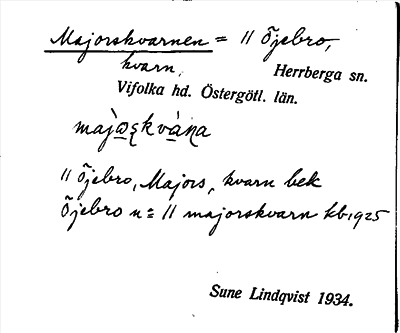 Majorskvarnen = 11 Öjebro,
kvarn, Herrberga sn.
Vifolka hd. Östergötl. län.
11 Öjebro, Majors, kvarn bek
Öjebro n= 11 majorskvarn kb. 1925
Sune Lindqvist 1934.